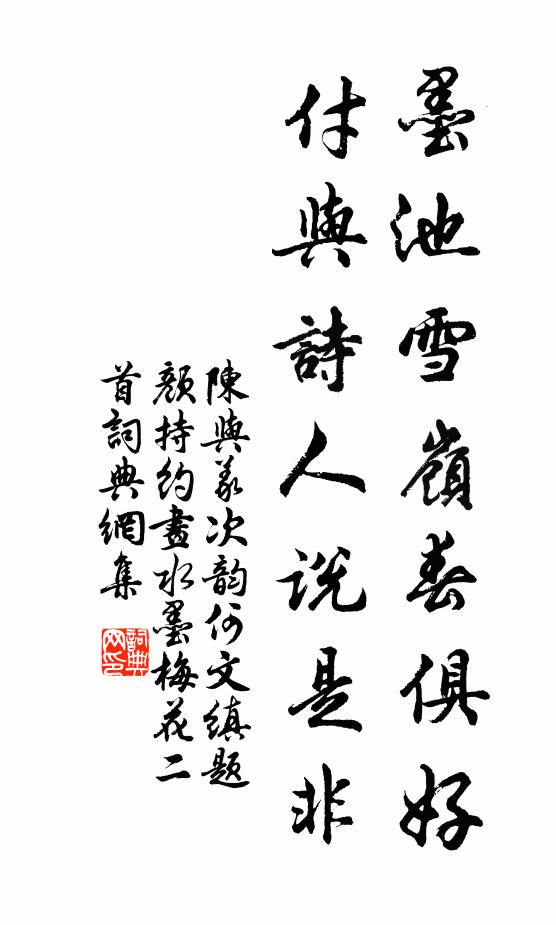 墨池雪嶺春俱好
付與詩人說是非
陳與義次韵何文縝題
顏持約畫水墨梅花二
首詞典網集
詞典
网印